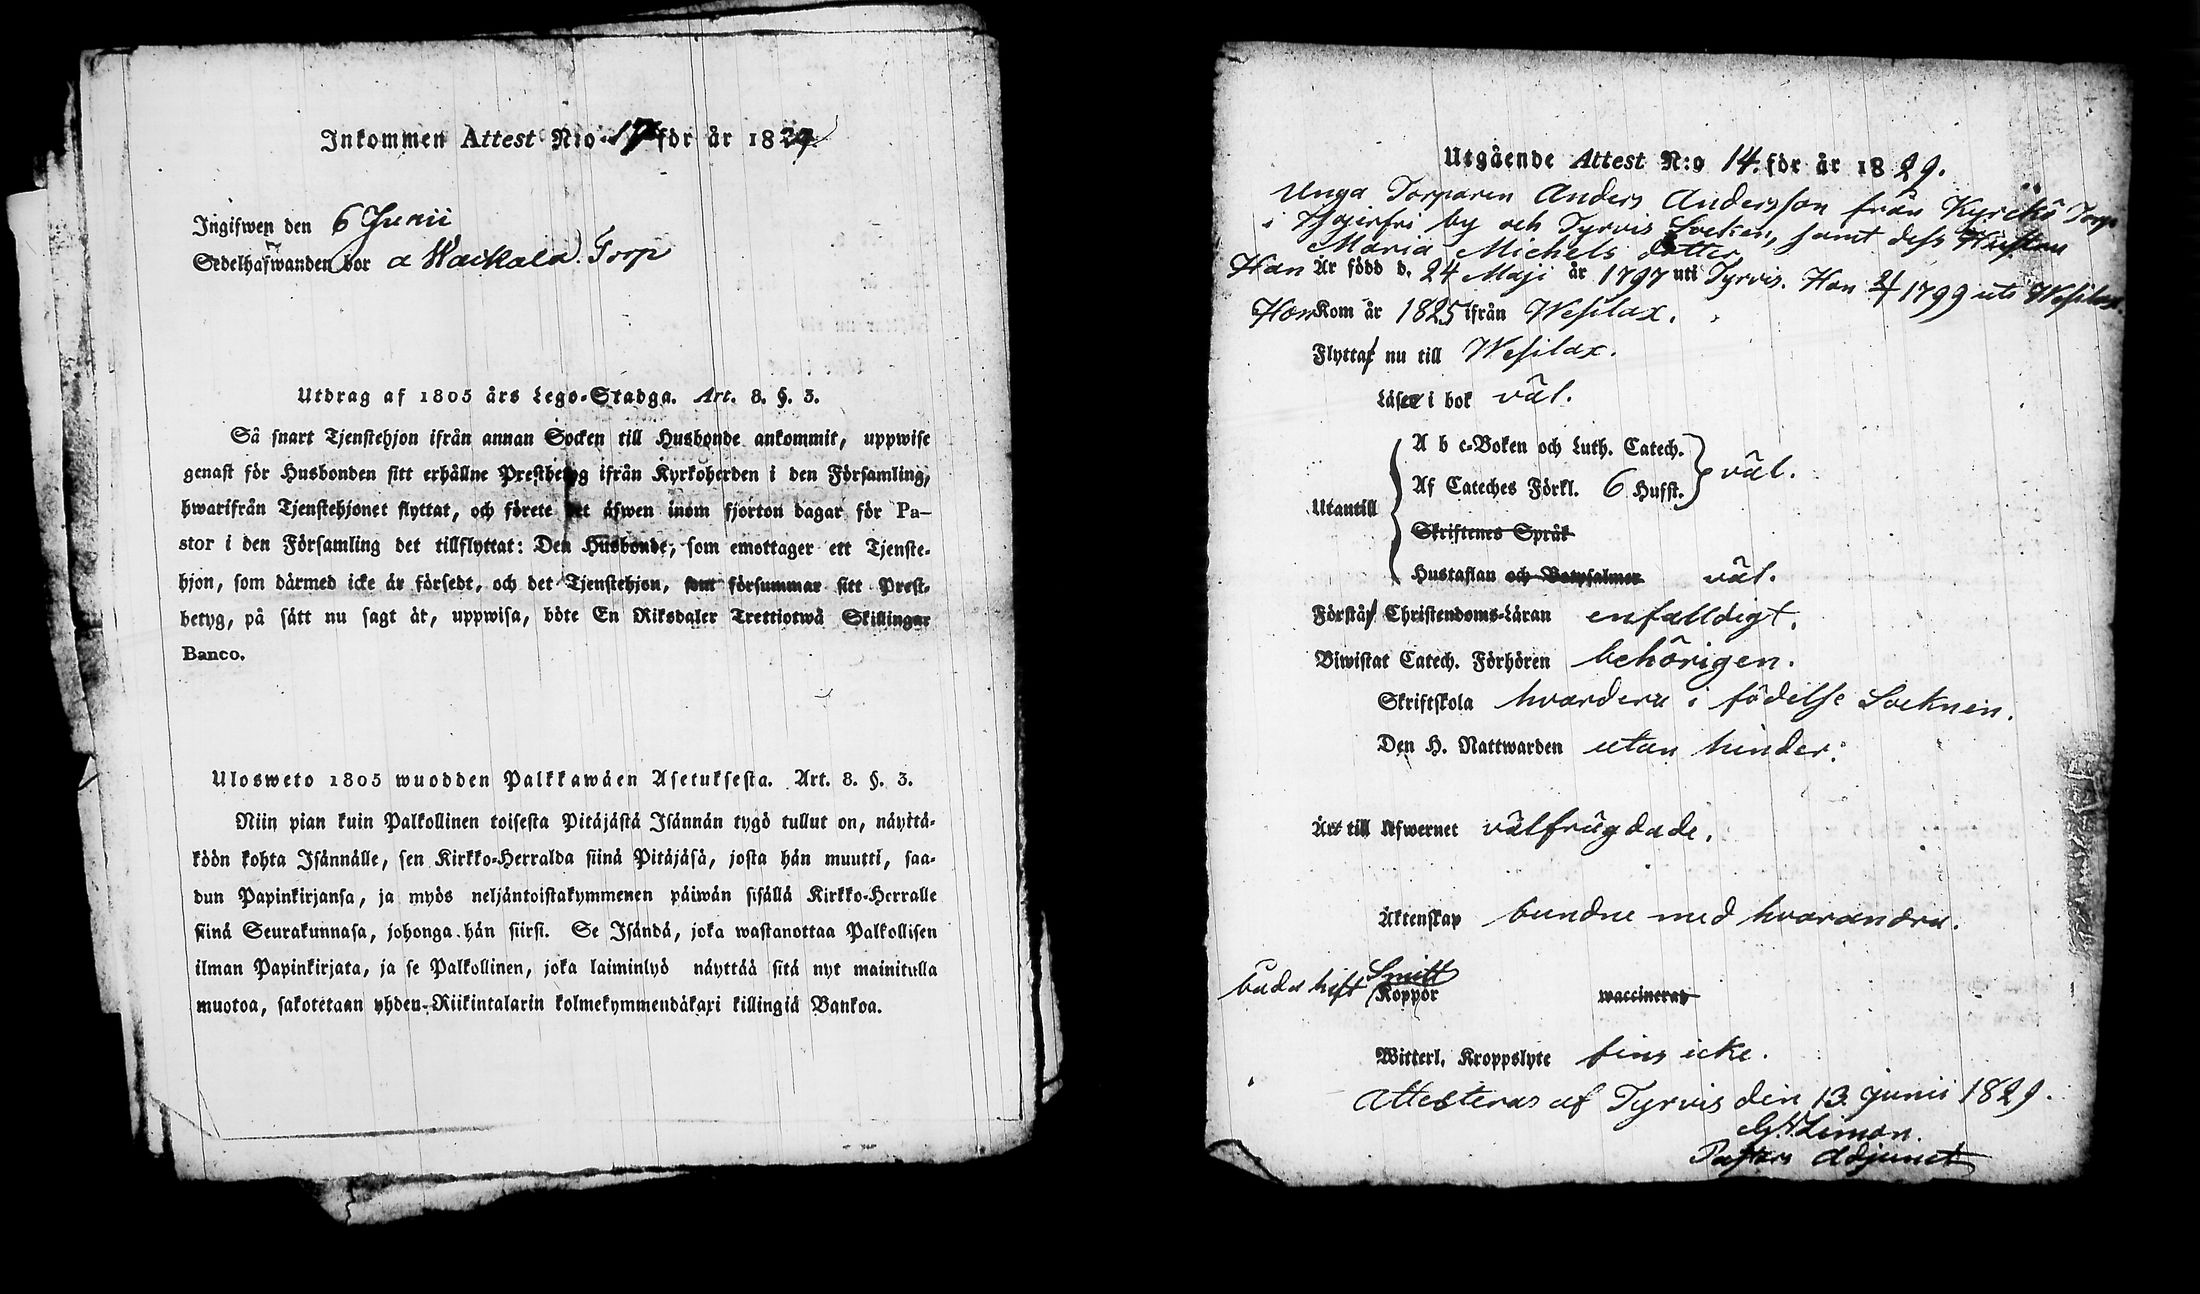 Inkommen Attest N:o 17 för år 1829
Ingifwen den 6 Junii
Sedelhafwanden bor a Waikala Torp
Utdrag af 1805 års Lego-Stadga. Art. 8. §. 3.
Så snart Tjenstehjon ifrån annan Socken till Husbonde ankommit, uppwise
genast för Husbonden sitt erhållne Prestbetyg ifrån Kyrkoherden i den Församling,
hwarifrån Tjenstehjonet flyttat, och förete det äfwen inom fjorton dagar för Pa-
stor i den Församling det tillflyttat: Den Husbonde, som emottager ett Tjenste-
hjon, som därmed icke är försedt, och det Tjenstehjon, som försummar sitt Prest-
betyg, på sätt nu sagt är, uppwisa, böte En Riksdaler Trettiotwå Skillingar
Banco.
Ulosweto 1805 wuodden Palkkawäen Asetuksesta. Art. 8. §. 3.
Niin pian kuin Palkollinen toisesta Pitäjästä Isännän tygö tullut on, näyttä-
köön kohta Isännälle, sen Kirkko-Herralda siinä Pitäjäsä, josta hän muutti, saa-
dun Papinkirjansa, ja myös neljäntoistakymmenen päiwän sisällä Kirkko-Herralle
siinä Seurakunnasa, johonga hän siirsi. Se Isändä, joka wastanottaa Palkollisen
ilman Papinkirjata, ja se Palkollinen, joka laiminlyö näyttää sitä nyt mainitulla
muotoa, sakotetaan yhden Riikintalarin kolmekymmendäkaxi killingiä Bankoa.
Utgående Attest N:o 14. för år 1829.
Unga Torparen Anders Andersson från Kyrckö Torp
i by och Tyrvis Socken, samt dess Hustru
Maria Michels dotter
Han Är född d. 24 Maji år 1797 uti Tyrvis. Hon 1799 uti Wesilax.
Hon Kom år 1825 ifrån Wesilax.
Flytta nu till Wesilax.
Läser i bok väl.
A b c-Boken och Luth. Catech.
Af Cateches Förkl. 6 Hufst. väl.
Utantill
Skriftenes Språk
Hustaflan och Botpsalmer väl.
Förstå Christendoms-Läran enfalldigt.
Biwistat Catech. Förhören behörigen.
Skriftskola hvardera i födelse Socknen.
Den H. Nattwarden utan hinder.
Är till Lefwernet välfrägdade.
Äktenskap bundne med hvarandra.
båda haft Koppor waccinerad
Witterl. Kroppslyte fins icke.
Attesteras af Tyrvis den 13 Junii 1829.
Limon.
Pastors Adjunct